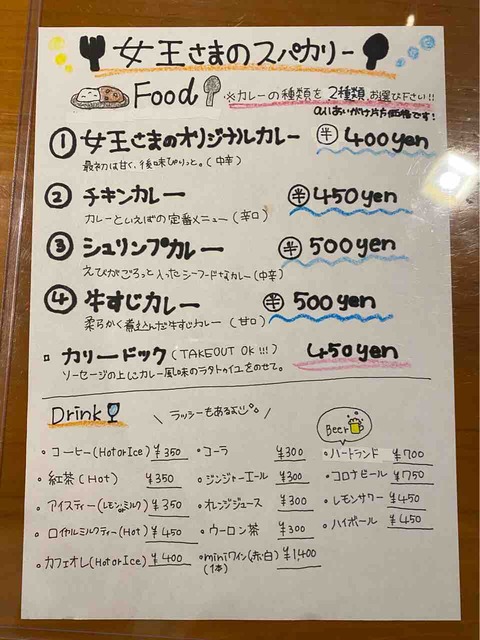 女王さまのスパカリー
Food
※カレーの種類を2種類お選び下さい!!
allあいがけ片方価格です!
① 女王さまのオリジナルカレー ㊥ 400yen
最初は甘く、後味ぴりっと。(中辛)
② チキンカレー 半 450yen
カレーといえばの定番メニュー(辛口)
③ シュリンプカレー 半 500yen
えびがごろっと入ったシーフードなカレー(中辛)
④ 牛すじカレー 半 500yen
柔らかく煮込んだ牛すじカレー (甘口)
カリードック(TAKEOUT OK!!!) 450yen
ソーセージの上にカレー風味のラタトゥイユをのせて。
Drink
\ ラッシーもあるよ /
・コーヒー(Hot or Ice) ¥350
・紅茶(Hot) ¥350
・アイスティー(レモンorミルク) ¥350
・ロイヤルミルクティー(Hot) ¥450
・カフェオレ(Hot or Ice) ¥400
・コーラ ¥300
・ジンジャーエール ¥300
・オレンジジュース ¥300
・ウーロン茶 ¥300
・miniワイン(赤・白) ¥1,400
(1本)
Beer
・ハートランド ¥700
・コロナビール ¥750
・レモンサワー ¥450
・ハイボール ¥450